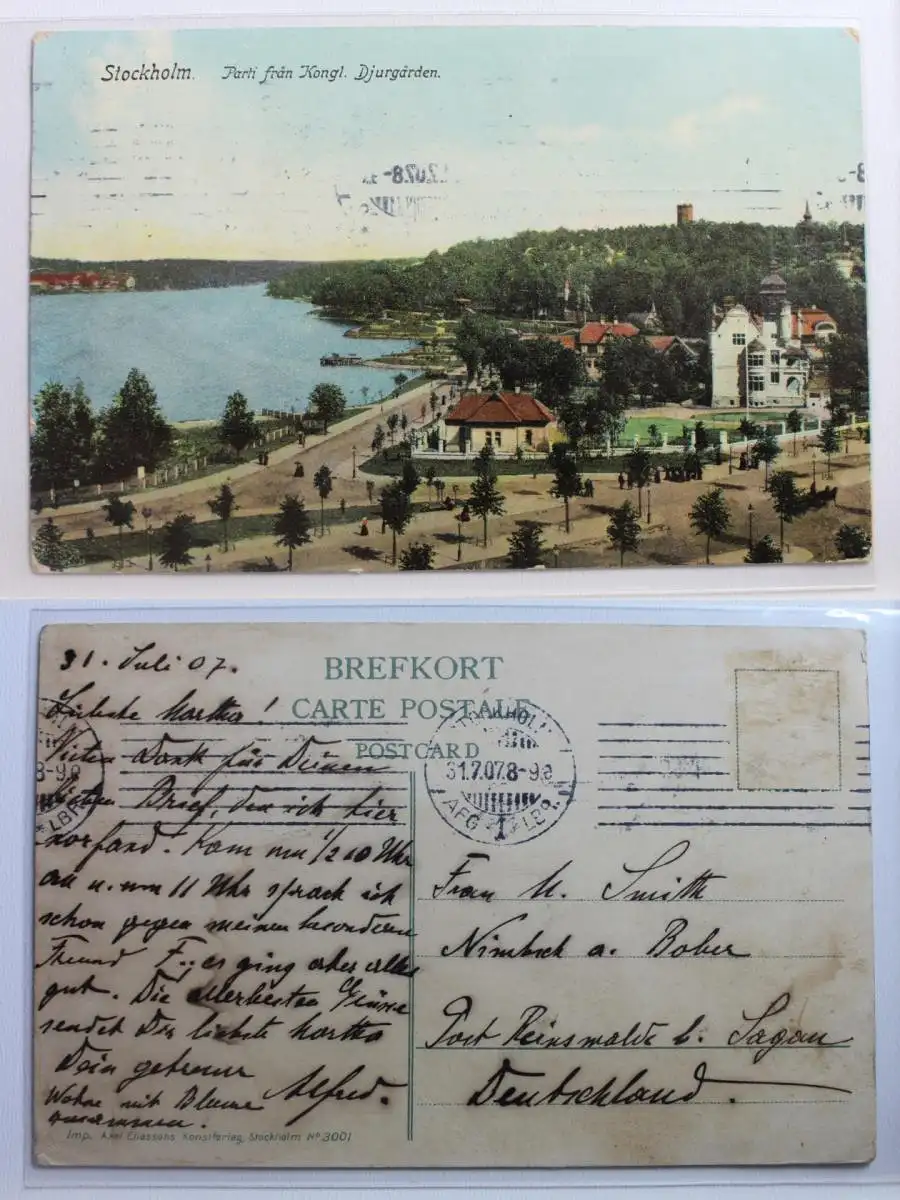 Stockholm. Parti från Kongl. Djurgården.
31. Juli 07.
Liebste Martha!
Vielen Dank für Deinen
lieben Brief, den ich hier
vorfand. Kam um 1/2 10 Uhr
an u. um 11 Uhr sprach ich
schon gegen meinen besonderen
Freund F.. es ging aber alles
gut. Die allerbesten Grüsse
sendet Dir liebste Martha
Dein getreuer
Alfred.
Wohne mit Blume
zusammen.
Imp. Axel Eliassons Konstförlag, Stockholm Nº 3001
BREFKORT
CARTE POSTALE
POSTCARD
STOCKHOLM
31.7.07. 8-9
AFG 1 LBR
Frau M. Smith
a. Bober
Post Reinswalde b. Sagan
Deutschland.